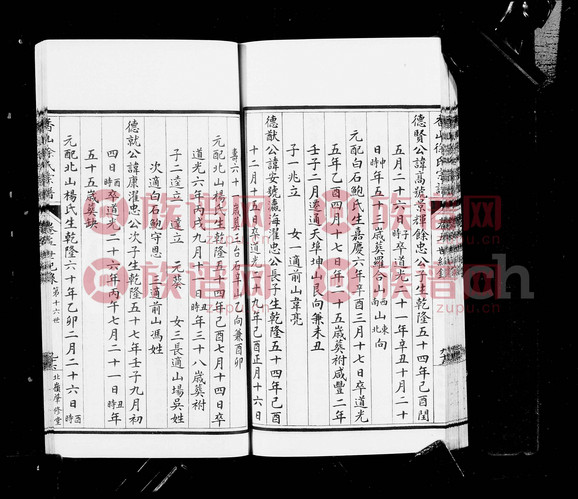 香山徐氏宗譜
德賢公諱高號景輝餘忠公子生乾隆五十四年己酉閏
五月二十六日時卒道光二十一年辛丑十月二十
日申時年五十一歲葬羅合山西南山東北向
元配白石鮑氏生嘉慶六年辛酉三月十七日卒道光
五年乙酉四月十七日年二十五歲葬祔咸豐二年
壬子二月遷通天埠坤山艮向兼未丑
子一兆立 女一適前山韋亮
德猷公諱安號瀛海濯忠公長子生乾隆五十四年己酉
十二月十五日卒道光十九年己亥正月十六日
壽六十
向兼酉卯
元配北山楊氏生乾隆五十四年己酉七月十四日卒
道光六年丙戌九月十日丑時年三十八歲葬祔
子二逵立道立 元葵 女三長適山場吳姓
次適白石鮑守恩 三適前山馮姓
德就公諱康濯忠公次子生乾隆五十七年壬子九月初
四日酉時卒道光二十六年丙午七月二十一日丑時年
五十五歲葬缺
元配北山楊氏生乾隆六十年乙卯二月二十六日酉時
香山徐氏宗譜
第十六世
北嶺肇修堂
族譜网
zupu.cn